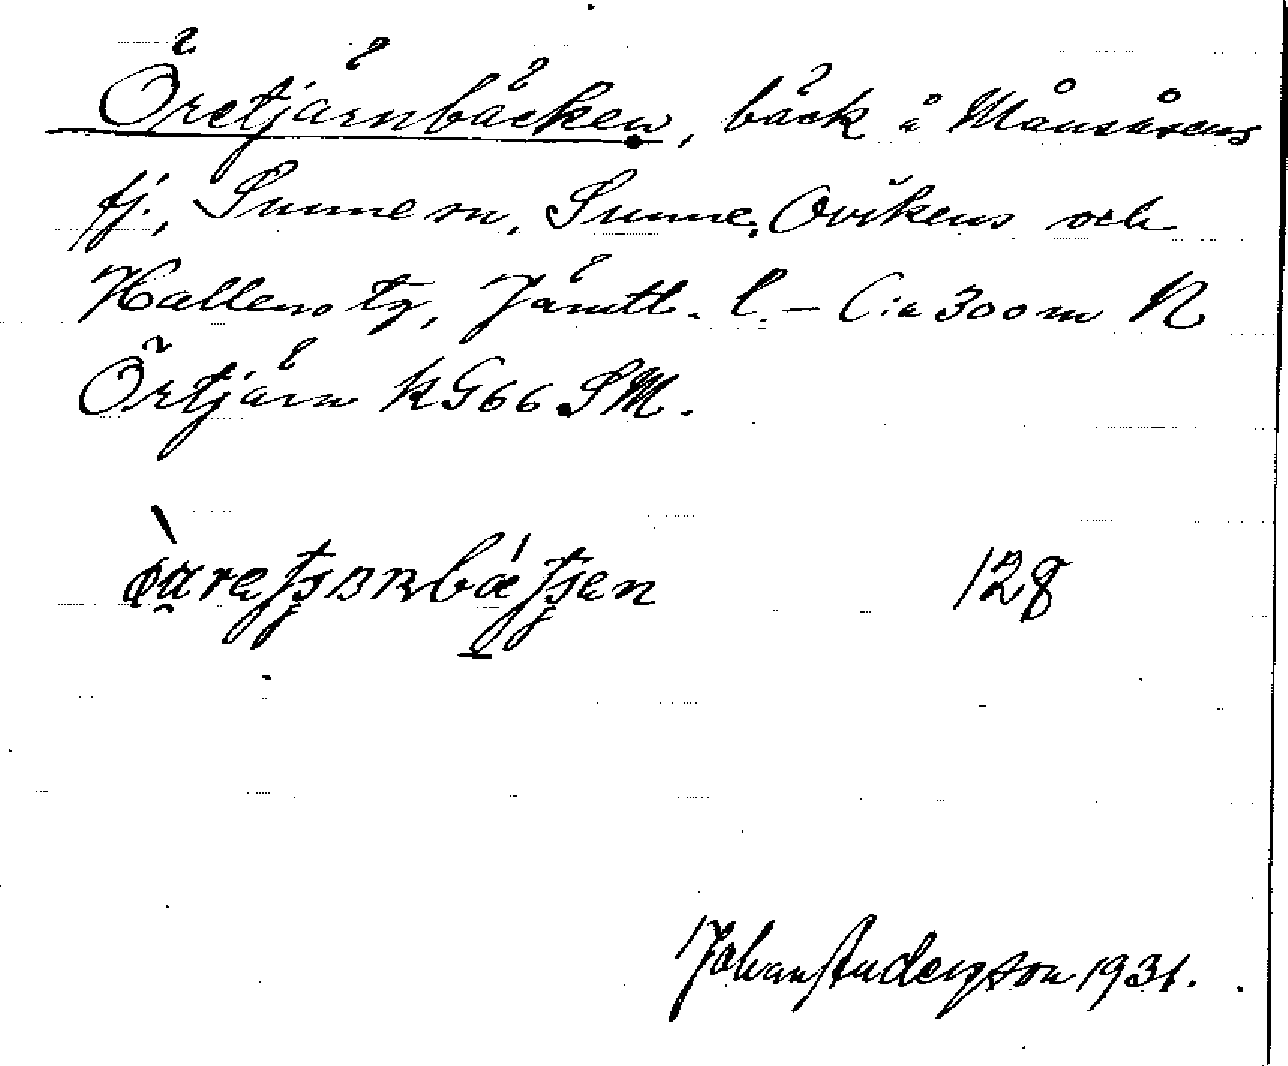 Öretjärnbäcken, bäck å Månsåsens
fj., Sunne sn, Sunne, Ovikens och
Hallens tg, Jämtl. l. – C:a 300 m N
Örtjärn kG66 SM.
128
Johan Anderzson 1931.